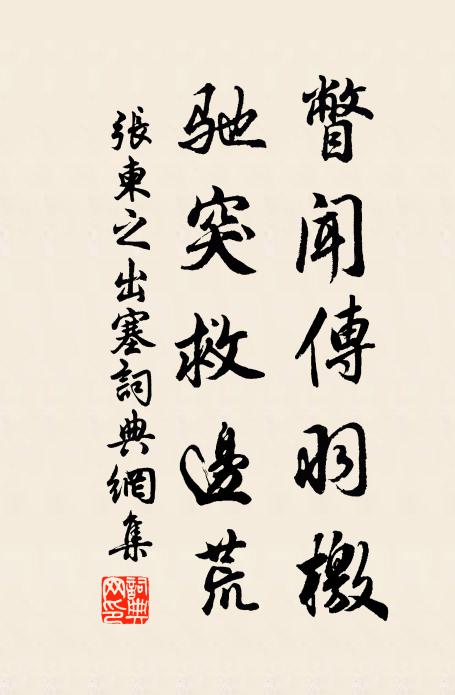 瞥聞傳羽檄
馳突救邊荒
張東之出塞詞典網集
詞典網印